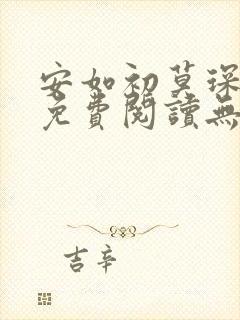 安如初莫琛
免費閱讀無
吉辛